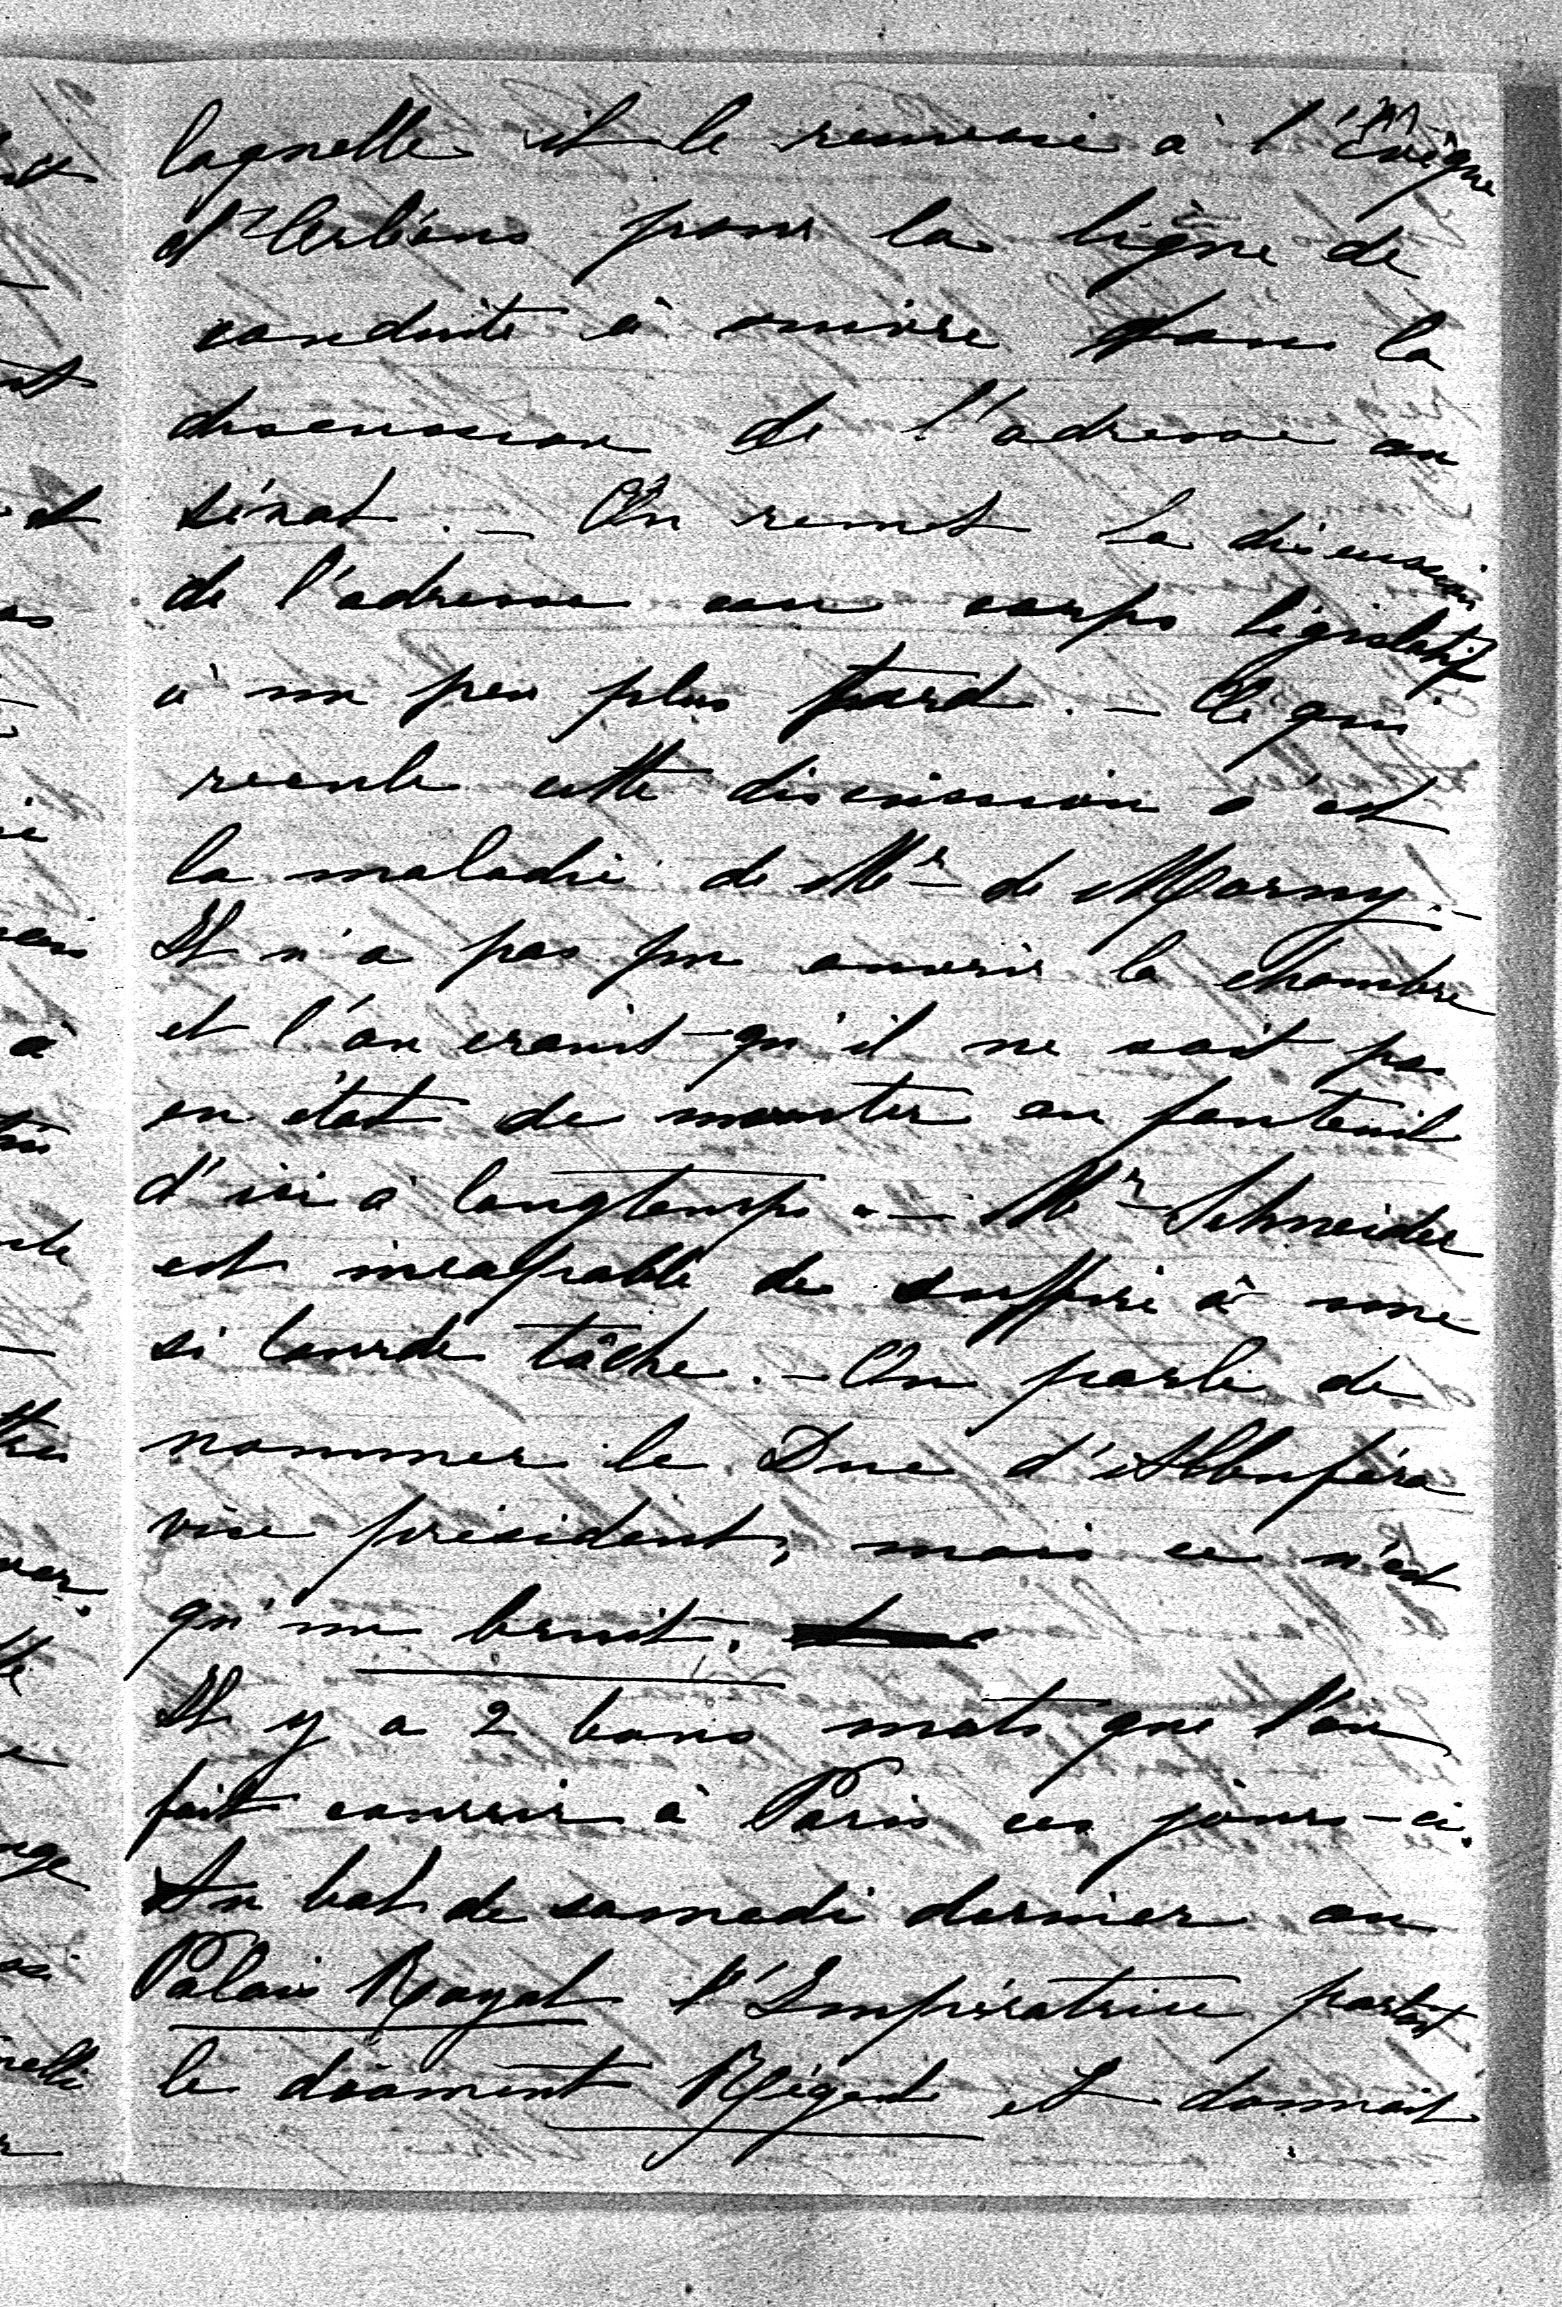 laquelle il le renvoie à l'Evêque
d'Orléans pour la ligne de
conduite à suivre dans la
discussion de l'adresse au
sénat. — On remet la discussion
de l'adresse au corps législatif
à un peu plus tard. — Ce qui
recule cette discussion c'est
la maladie de Mr de Morny. —
Il n'a pas pu ouvrir la chambre
et l'on craint qu'il ne soit pas
en état de monter au fauteuil
d'ici à longtemps. — Mr Schneider
est incapable de suffire à une
si lourde tâche. — On parle de
nommer le Duc d'Albuféra
vice président, mais ce n'est
qu'un bruit.
Il y a 2 bons mots que l'on
fait courir à Paris ces jours-ci.
Au bal de samedi dernier au
Palais Royal l'Impératrice portait
le diamant Régent et donnait